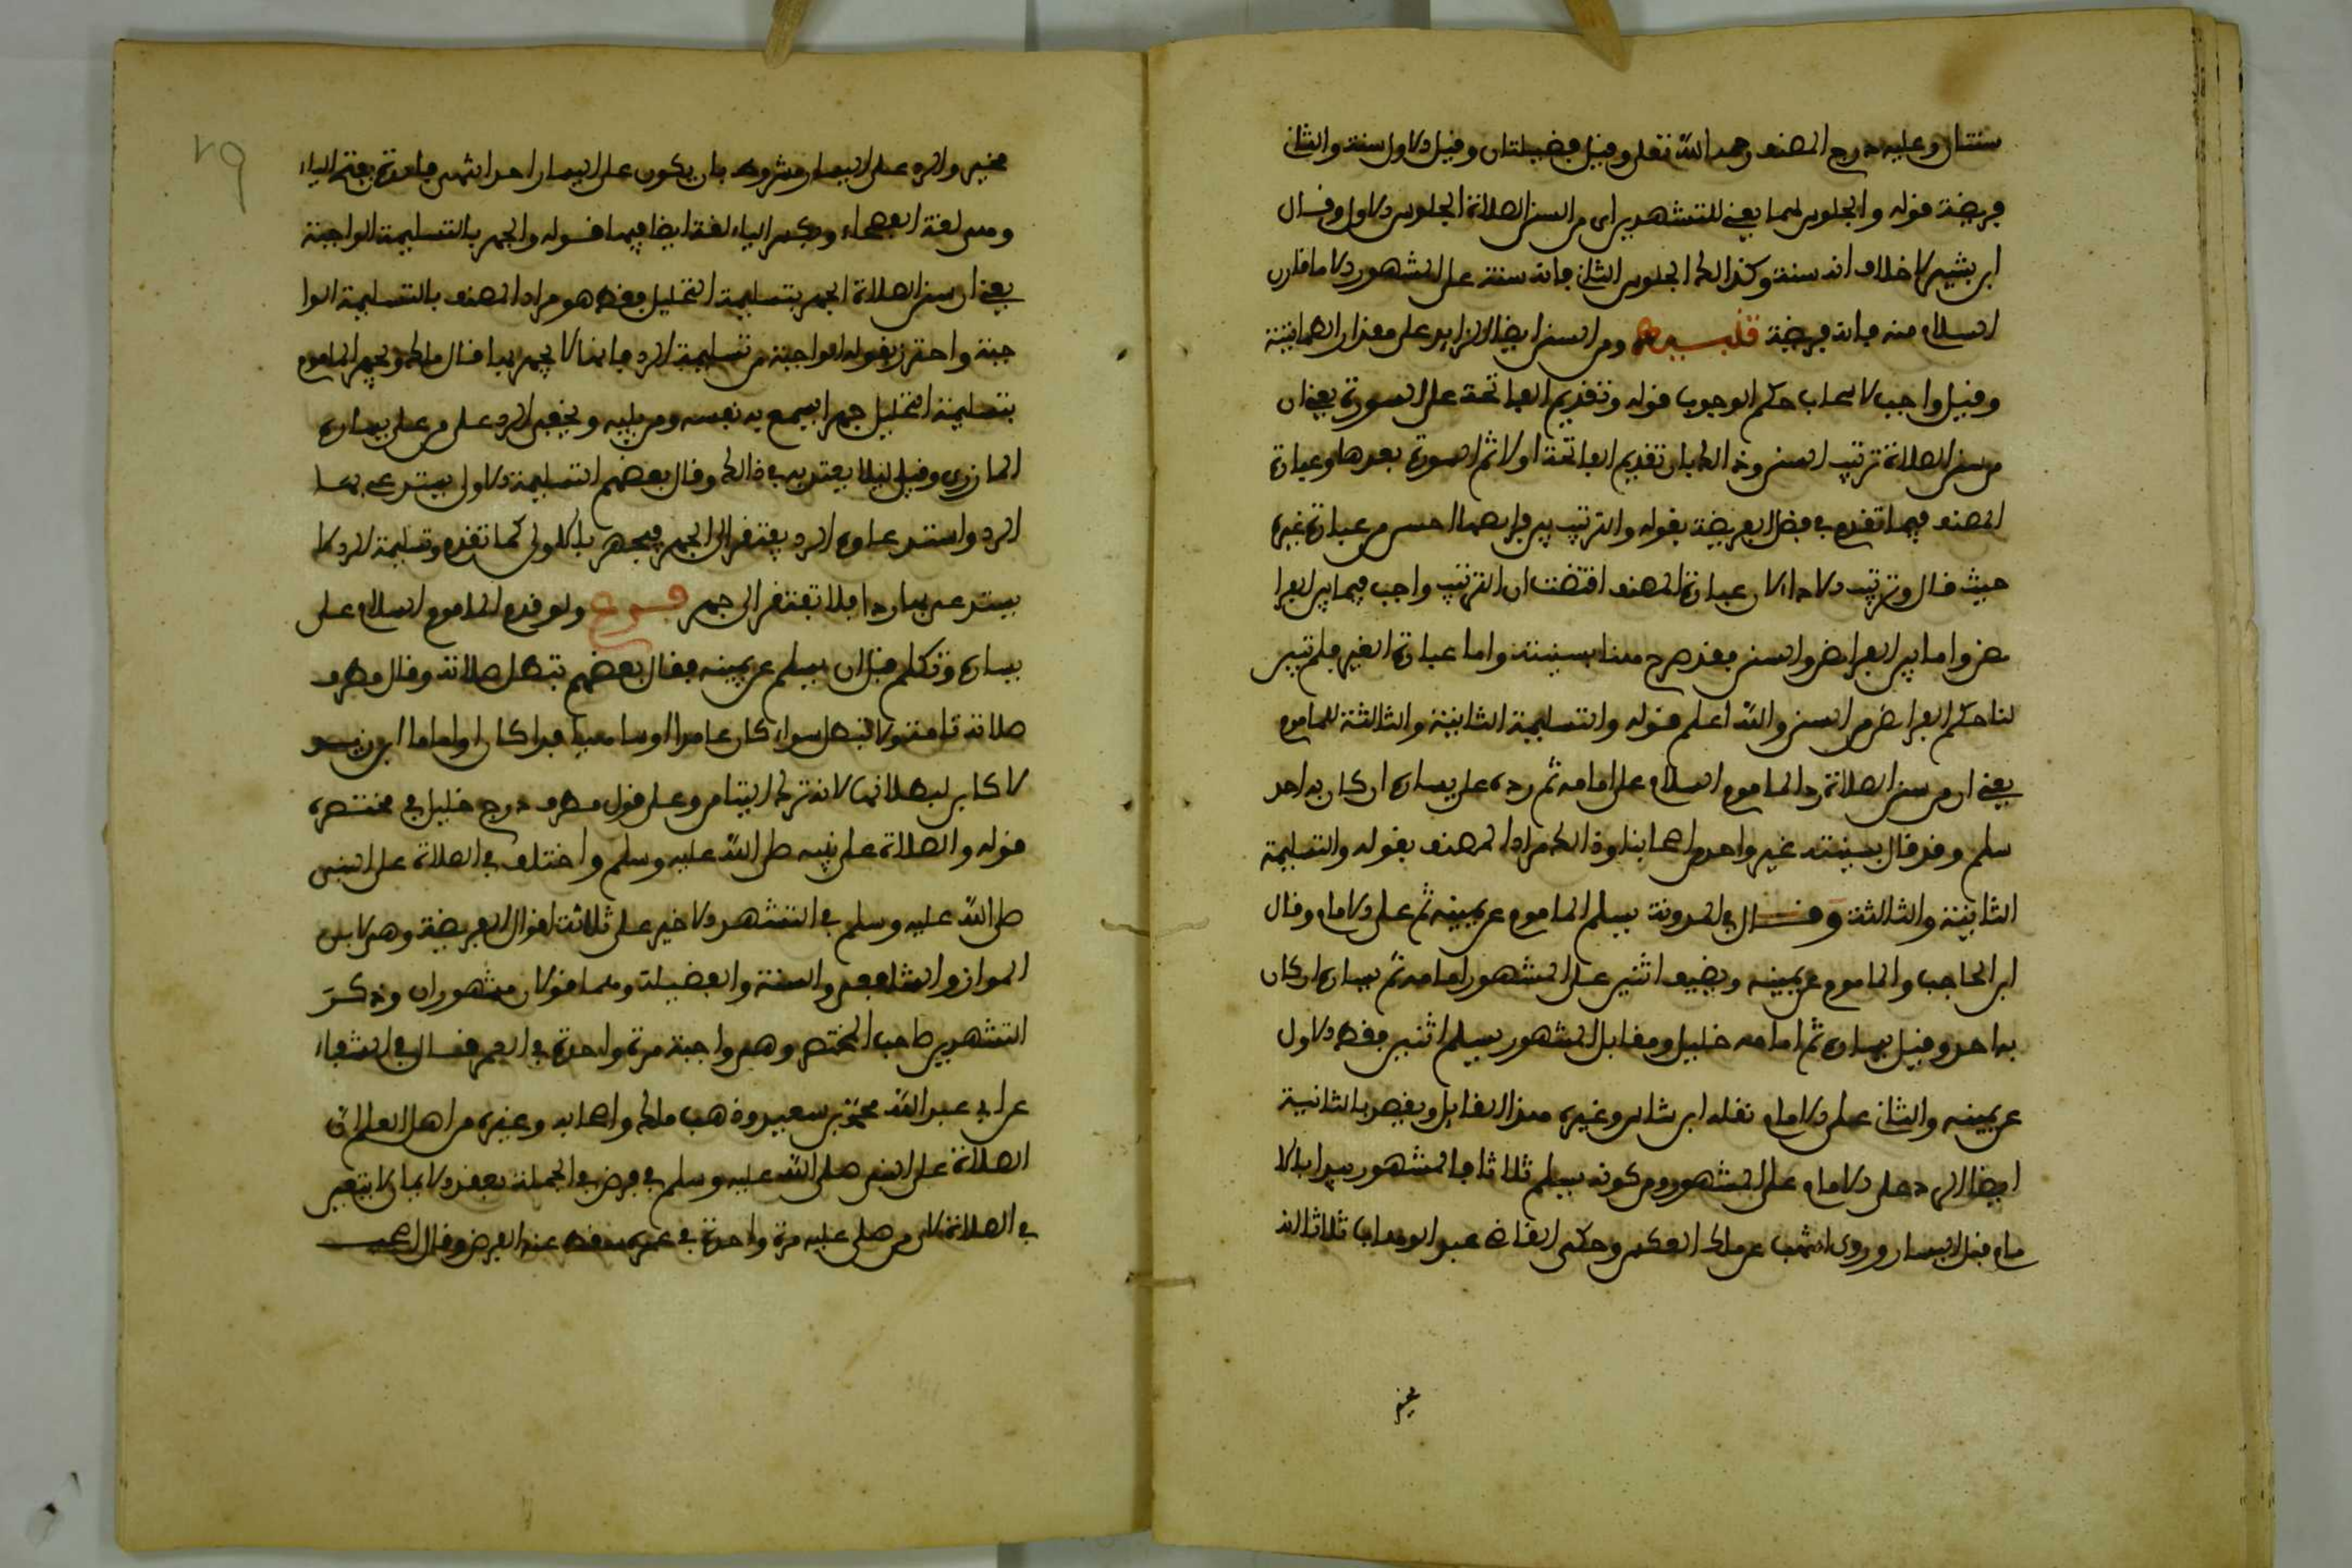 سنتان وعليه درج المصنف رحمه الله تعلى وقيل فضيلتان وقيل الاول سنة والثاني
فريضة قوله والجلوس لهما يعني للتشهدين اي من السنن الصلاة الجلوس الاول وقال
ابن بشير لا خلاف انه سنة وكذالك الجلوس الثاني فانه سنة على المشهور الا ما قارن
السلام منه فانه فريضة تنبيه ومن السنن ايضا الزايد على مقدار الطمانينة
وقيل واجب لانسحاب حكم الوجوب قوله وتقديم الفاتحة على السورة يعني ان
من سنن الصلاة ترتيب السنن وذالك بان تقديم الفاتحة اولا ثم السورة بعدها وعبارة
المصنف فيما تقدم في فضل الفريضة بقوله والترتيب بين فرايضها احسن من عبارة غيره
حيث قال وترتيب الاداء لان عبارة المصنف اقتضت ان الترتيب واجب فيما بين الفرا
يض واما بين الفرايض والسنن فقد صرح هنا بسنيته واما عبارة الغير فلم تبين
لنا حكم الفرايض من السنن والله اعلم قوله والتسليمة الثانية والثالثة للماموم
يعني ان من سنن الصلاة رد الماموم السلام على امامه ثم رده على يساره ان كان به احد
سلم وقد قال بسنيته غير واحد من اصحابنا وذالك مراد المصنف بقوله والتسليمة
الثانية والثالثة وقال في المدونة يسلم الماموم عن يمينه ثم على الامام وقال
ابن الحاجب والماموم عن يمينه ويضيف اثنين على المشهور امامه ثم يساره ان كان
به احد وقيل يساره ثم امامه خليل ومقابل المشهور يسلم اثنين فقط الاول
عن يمينه والثاني على الامام نقله ابن شاس وغيره هذا المقابل ويقصد بالثانية
ايضا الرد على الامام على المشهور ومن كونه يسلم ثلاثا فالمشهور يبدا بالا
مام قبل اليسار وروى اشهب عن مالك العكس وحكى القاضي عبد الوهاب ثالثا انه
مخير
مخير والرد على اليسار مشروط بان يكون على اليسار احد انتهى فايدة بفتح الياء
وهي لغة الفصحاء وبكسر الياء لغة ايضا فيها قوله والجهر بالتسليمة الواجبة
يعني ان من سنن الصلاة الجهر بتسليمة التحليل فقط هو مراد المصنف بالتسليمة الوا
جبة واحترز بقوله الواجبة من تسليمة الرد فانها لا يجهر بها قال مالك ويجهر الماموم
بتسليمة التحليل جهرا يسمع به نفسه ومن يليه ويخفي الرد على من على يساره
المازري وقيل ليلا يقتدى به في ذالك وقال بعضهم التسليمة الاولى يستدعى بها
الرد واستدعاء الرد يفتقر الى الجهر فيجهر بالاولى كما تقدم وتسليمة الرد لا
يستدعى بها رد فلا تفتقر الى جهر فرع ولو قدم الماموم السلام على
يساره وتكلم قبل ان يسلم عن يمينه فقال بعضهم تبطل صلاته وقال مطرف
صلاته تامة ولا تبطل سواء كان عامدا او ساهيا فذا كان او اماما ابن يونس
لا كابن لبطلانها لانه ترك التيامن وعلى قول مطرف درج خليل في مختصره
قوله والصلاة على نبيه صلى الله عليه وسلم واختلف في الصلاة على النبي
صلى الله عليه وسلم في التشهد الاخير على ثلاثة اقوال الفريضة وهي لابن
المواز والشافعي والسنة والفضيلة وهما قولان مشهوران وذكر
التشهدين صاحب المختصر وهي واجبة مرة واحدة في العمر فقال في الشفاء
عن ابي عبد الله محمد بن سعيد وذهب مالك واصحابه وغيره من اهل العلم ان
الصلاة على النبي صلى الله عليه وسلم في فرض في الجملة بعقد الايمان لا يتعين
في الصلاة لان من صلى عليه مرة واحدة في عمره سقط عنه الفرض وقال